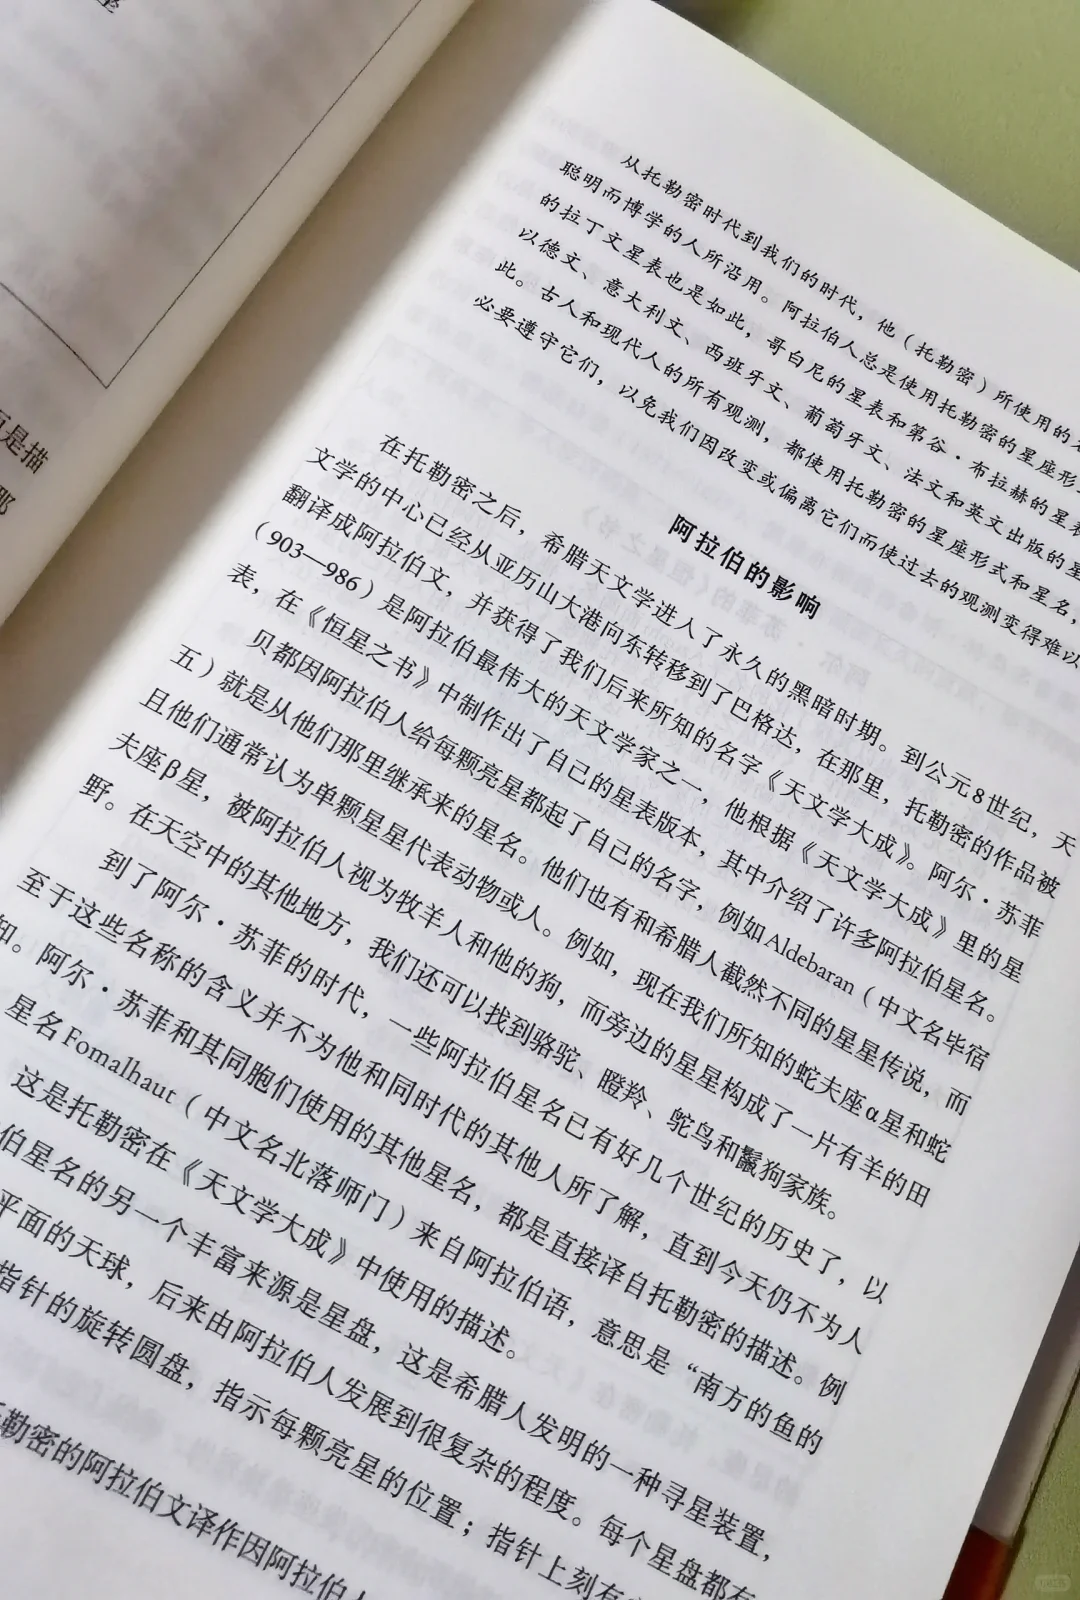 是描
那
从托勒密时代到我们的时代，他（托勒密）所使用的
聪明而博学的人所沿用。阿拉伯人总是使用托勒密的星座形
的拉丁文星表也是如此，哥白尼的星表和第谷·布拉赫的星表
以德文、意大利文、西班牙文、葡萄牙文、法文和英文出版的星
此。古人和现代人的所有观测，都使用托勒密的星座形式和星名，
必要遵守它们，以免我们因改变或偏离它们而使过去的观测变得难以
阿拉伯的影响
在托勒密之后，希腊天文学进入了永久的黑暗时期。到公元8世纪，天
文学的中心已经从亚历山大港向东转移到了巴格达，在那里，托勒密的作品被
翻译成阿拉伯文，并获得了我们后来所知的名字《天文学大成》。阿尔·苏菲
（903—986）是阿拉伯最伟大的天文学家之一，他根据《天文学大成》里的星
表，在《恒星之书》中制作出了自己的星表版本，其中介绍了许多阿拉伯星名。
贝都因阿拉伯人给每颗亮星都起了自己的名字，例如Aldebaran（中文名毕宿
五）就是从他们那里继承来的星名。他们也有和希腊人截然不同的星星传说，而
且他们通常认为单颗星星代表动物或人。例如，现在我们所知的蛇夫座α星和蛇
夫座β星，被阿拉伯人视为牧羊人和他的狗，而旁边的星星构成了一片有羊的田
野。在天空中的其他地方，我们还可以找到骆驼、瞪羚、鸵鸟和鬣狗家族。
到了阿尔·苏菲的时代，一些阿拉伯星名已有好几个世纪的历史了，以
至于这些名称的含义并不为他和同时代的其他人所了解，直到今天仍不为人
知。阿尔·苏菲和其同胞们使用的其他星名，都是直接译自托勒密的描述。例
星名Fomalhaut（中文名北落师门）来自阿拉伯语，意思是“南方的鱼的
这是托勒密在《天文学大成》中使用的描述。
伯星名的另一个丰富来源是星盘，这是希腊人发明的一种寻星装置，
平面的天球，后来由阿拉伯人发展到很复杂的程度。每个星盘都有
指针的旋转圆盘，指示每颗亮星的位置；指针上刻有
勒密的阿拉伯文译作因阿拉伯